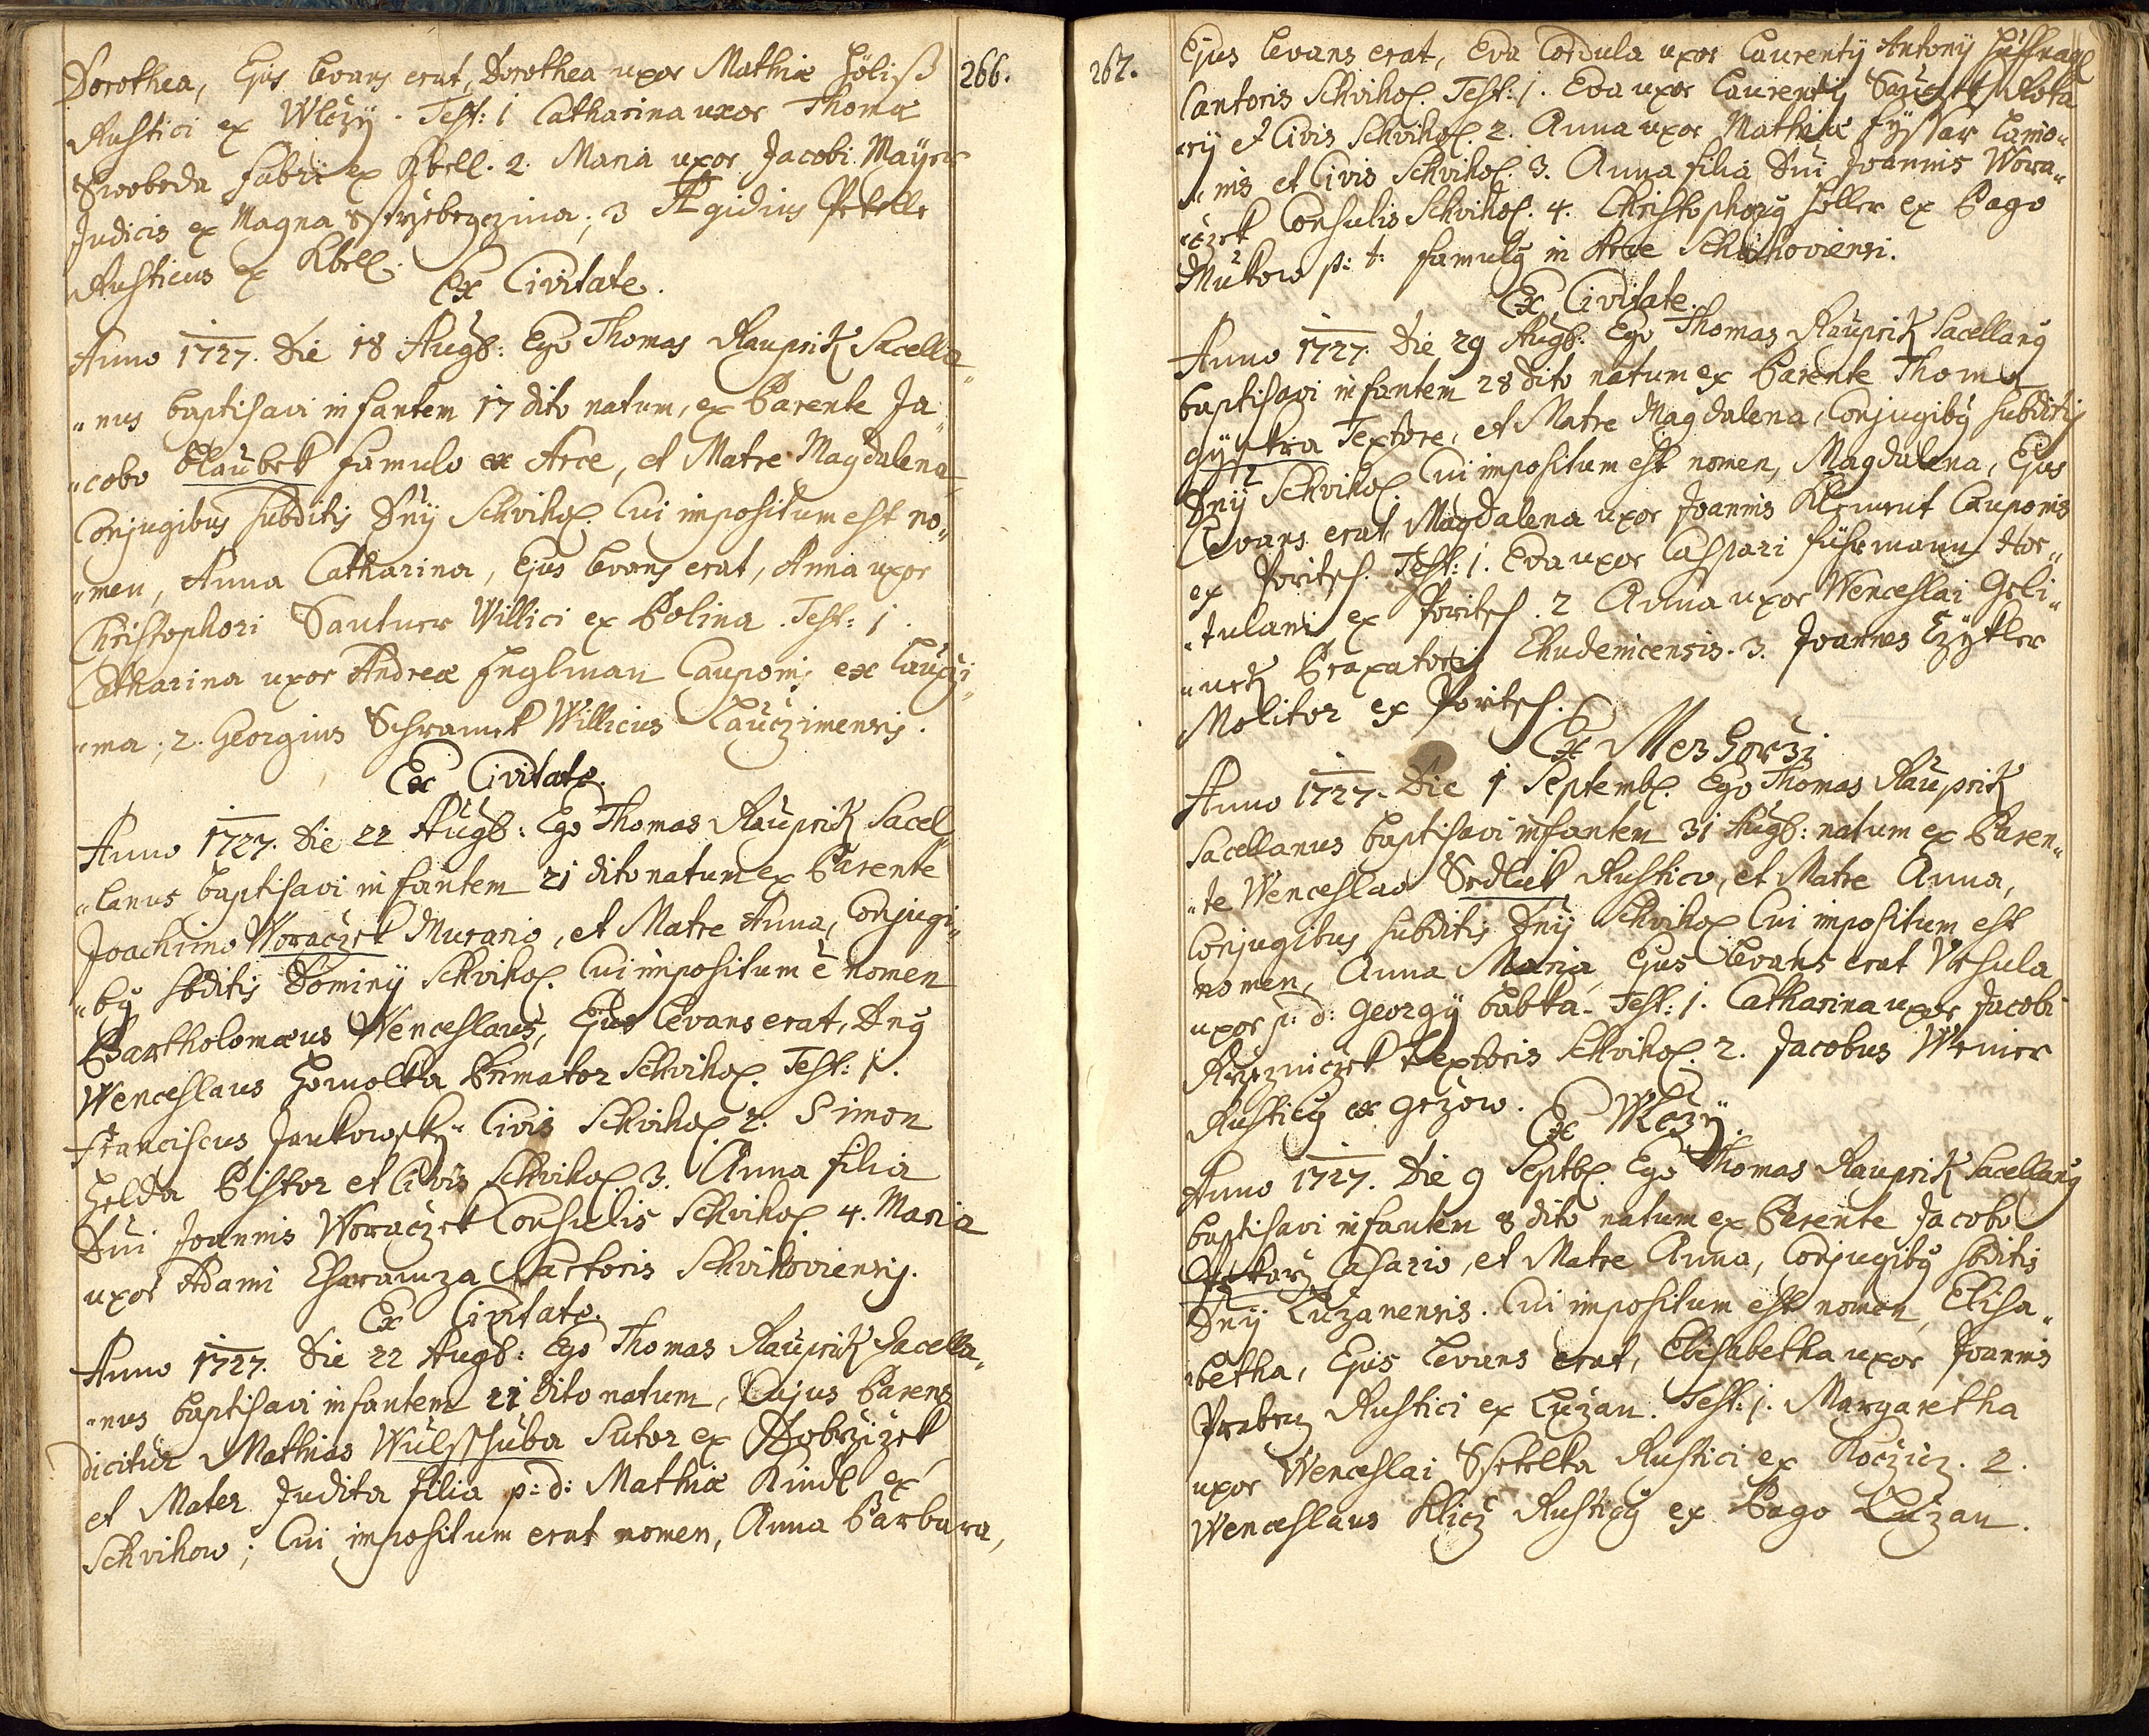 266.
Dorothea, Ejus levans erat, Dorothea uxor Mathiæ Höliß
Rustici ex Wlczÿ. Test: 1 Catharina uxor Thomæ
Swoboda fabri ex Kbell. 2. Maria uxor Jacobi Maÿer
Judicis ex Magna ; 3 Ægidius Petelle
Rusticus ex Kbell.
Ex Civitate.
Anno 1727. Die 18 Augb: Ego Thomas Rauprik Sacella„
„nus baptisavi infantem 17 dito natum, ex Parente Ja„
„cobo Blaubek famulo ex Arce, et Matre Magdalena
Conjugibus subditis Dnÿ Schvihox. Cui impositum est no„
„men, Anna Catharina, Ejus levans erat, Anna uxor
Christophori Santner Willici ex Polina. Test: 1.
Catharina uxor Andreæ Englman Cauponis ex Lauczi„
„ma; 2. Georgius Schramek Willicus Lauczimensis.
Ex Civitate.
Anno 1727. Die 22 Augb: Ego Thomas Rauprik Sacel„
„lanus baptisavi infantem 21 dito natum ex Parente
Joachimo Woraczek Murario, et Matre Anna, Conjugi„
„bg sbditis Dominÿ Schvihox. Cui impositum è nomen
Bartholomæus Wenceslaus, Ejus levans erat, Dng
Wenceslaus Homolka Primator Schvihox. Test: 1.
Franciscus Jankowskÿ Civis Schvihox 2. Simon
Helda Pistor et Civis Schvihox 3. Anna filia
Dni Joannis Woraczek Consulis Schvihox 4. Maria
uxor Adami Charamza Factoris Schvihoviensis.
Ex Civitate.
Anno 1727. Die 22 Augb: Ego Thomas Rauprik Sacella„
„nus baptisavi infantem 21 dito natum, Cujus Parens
dicitur Mathias Wulsschuba Sutor ex Dobrzizek
et Mater Judita filia p: d: Mathiæ Kindl ex
Schvihow; Cui impositum erat nomen, Anna Barbara,
267.
Ejus levans erat, Eva Cordula uxor Laurentÿ Antonÿ
Cantoris Schvihox. Test: 1. Eva uxor Laurentÿ Rota
„rÿ et Civis Schvihox. 2. Anna uxor Mathiæ Fÿssar Lanio„
„nis et Civis Schvihox. 3. Anna filia Dni Joannis Wora„
„czek Consulis Schvihox. 4. Christophorg Höller ex Pago
Mukow p: t: famulg in Arce Schvihoviensi.
Ex Civitate.
Anno 1727. Die 29 Augb: Ego Thomas Rauprik Sacellang
baptisavi infantem 28 dito natum ex Parente Thoma
Textore, et Matre Magdalena, Conjugibg subditis
Dnÿ Schvihox Cui impositum est nomen, Magdalena, Ejus
levans erat, Magdalena uxor Joannis Klement Cauponis
ex Poritsch. Test: 1. Eva uxor Caspari Fuhrmann Hor„
„tulani ex Poritsch. 2 Anna uxor Wenceslai Geli„
„nek Braxatoris Chudenicensis. 3. Joannes Czÿkler
Molitor ex Poritsch.
Ex Mezhorzi
Anno 1727. Die 1 Septembx. Ego Thomas Rauprik
Sacellanus baptisavi infantem 31 Augb: natum ex Paren„
„te Wenceslao Sedlak Rustico, et Matre Anna,
Conjugibus subditis Dnÿ Schvihox Cui impositum est
nomen, Anna Maria, Ejus levans erat Ursula
uxor p: d: Georgÿ babka. Test: 1. Catharina uxor Jacobi
Rzezniczek textoris Schvihox. 2. Jacobus Weiner
Rusticg ex Gezow.
Ex Wlczÿ.
Anno 1727. Die 9 Septbx. Ego Thomas Rauprik Sacellang
baptisavi infantem 8 dito natum ex Perente Jacobo
Pekarz Casario, et Matre Anna, Conjugibg sbditis
Dnÿ Luzanensis. Cui impositum est nomen, Elisa„
„betha, Ejus levans erat, Elisabetha uxor Joannis
Rustici ex Luzan. Test: 1. Margaretha
uxor Wenceslai Ssetelka Rustici ex Roczicz. 2.
Wenceslaus Klicz Rusticg ex Pago Luzan.